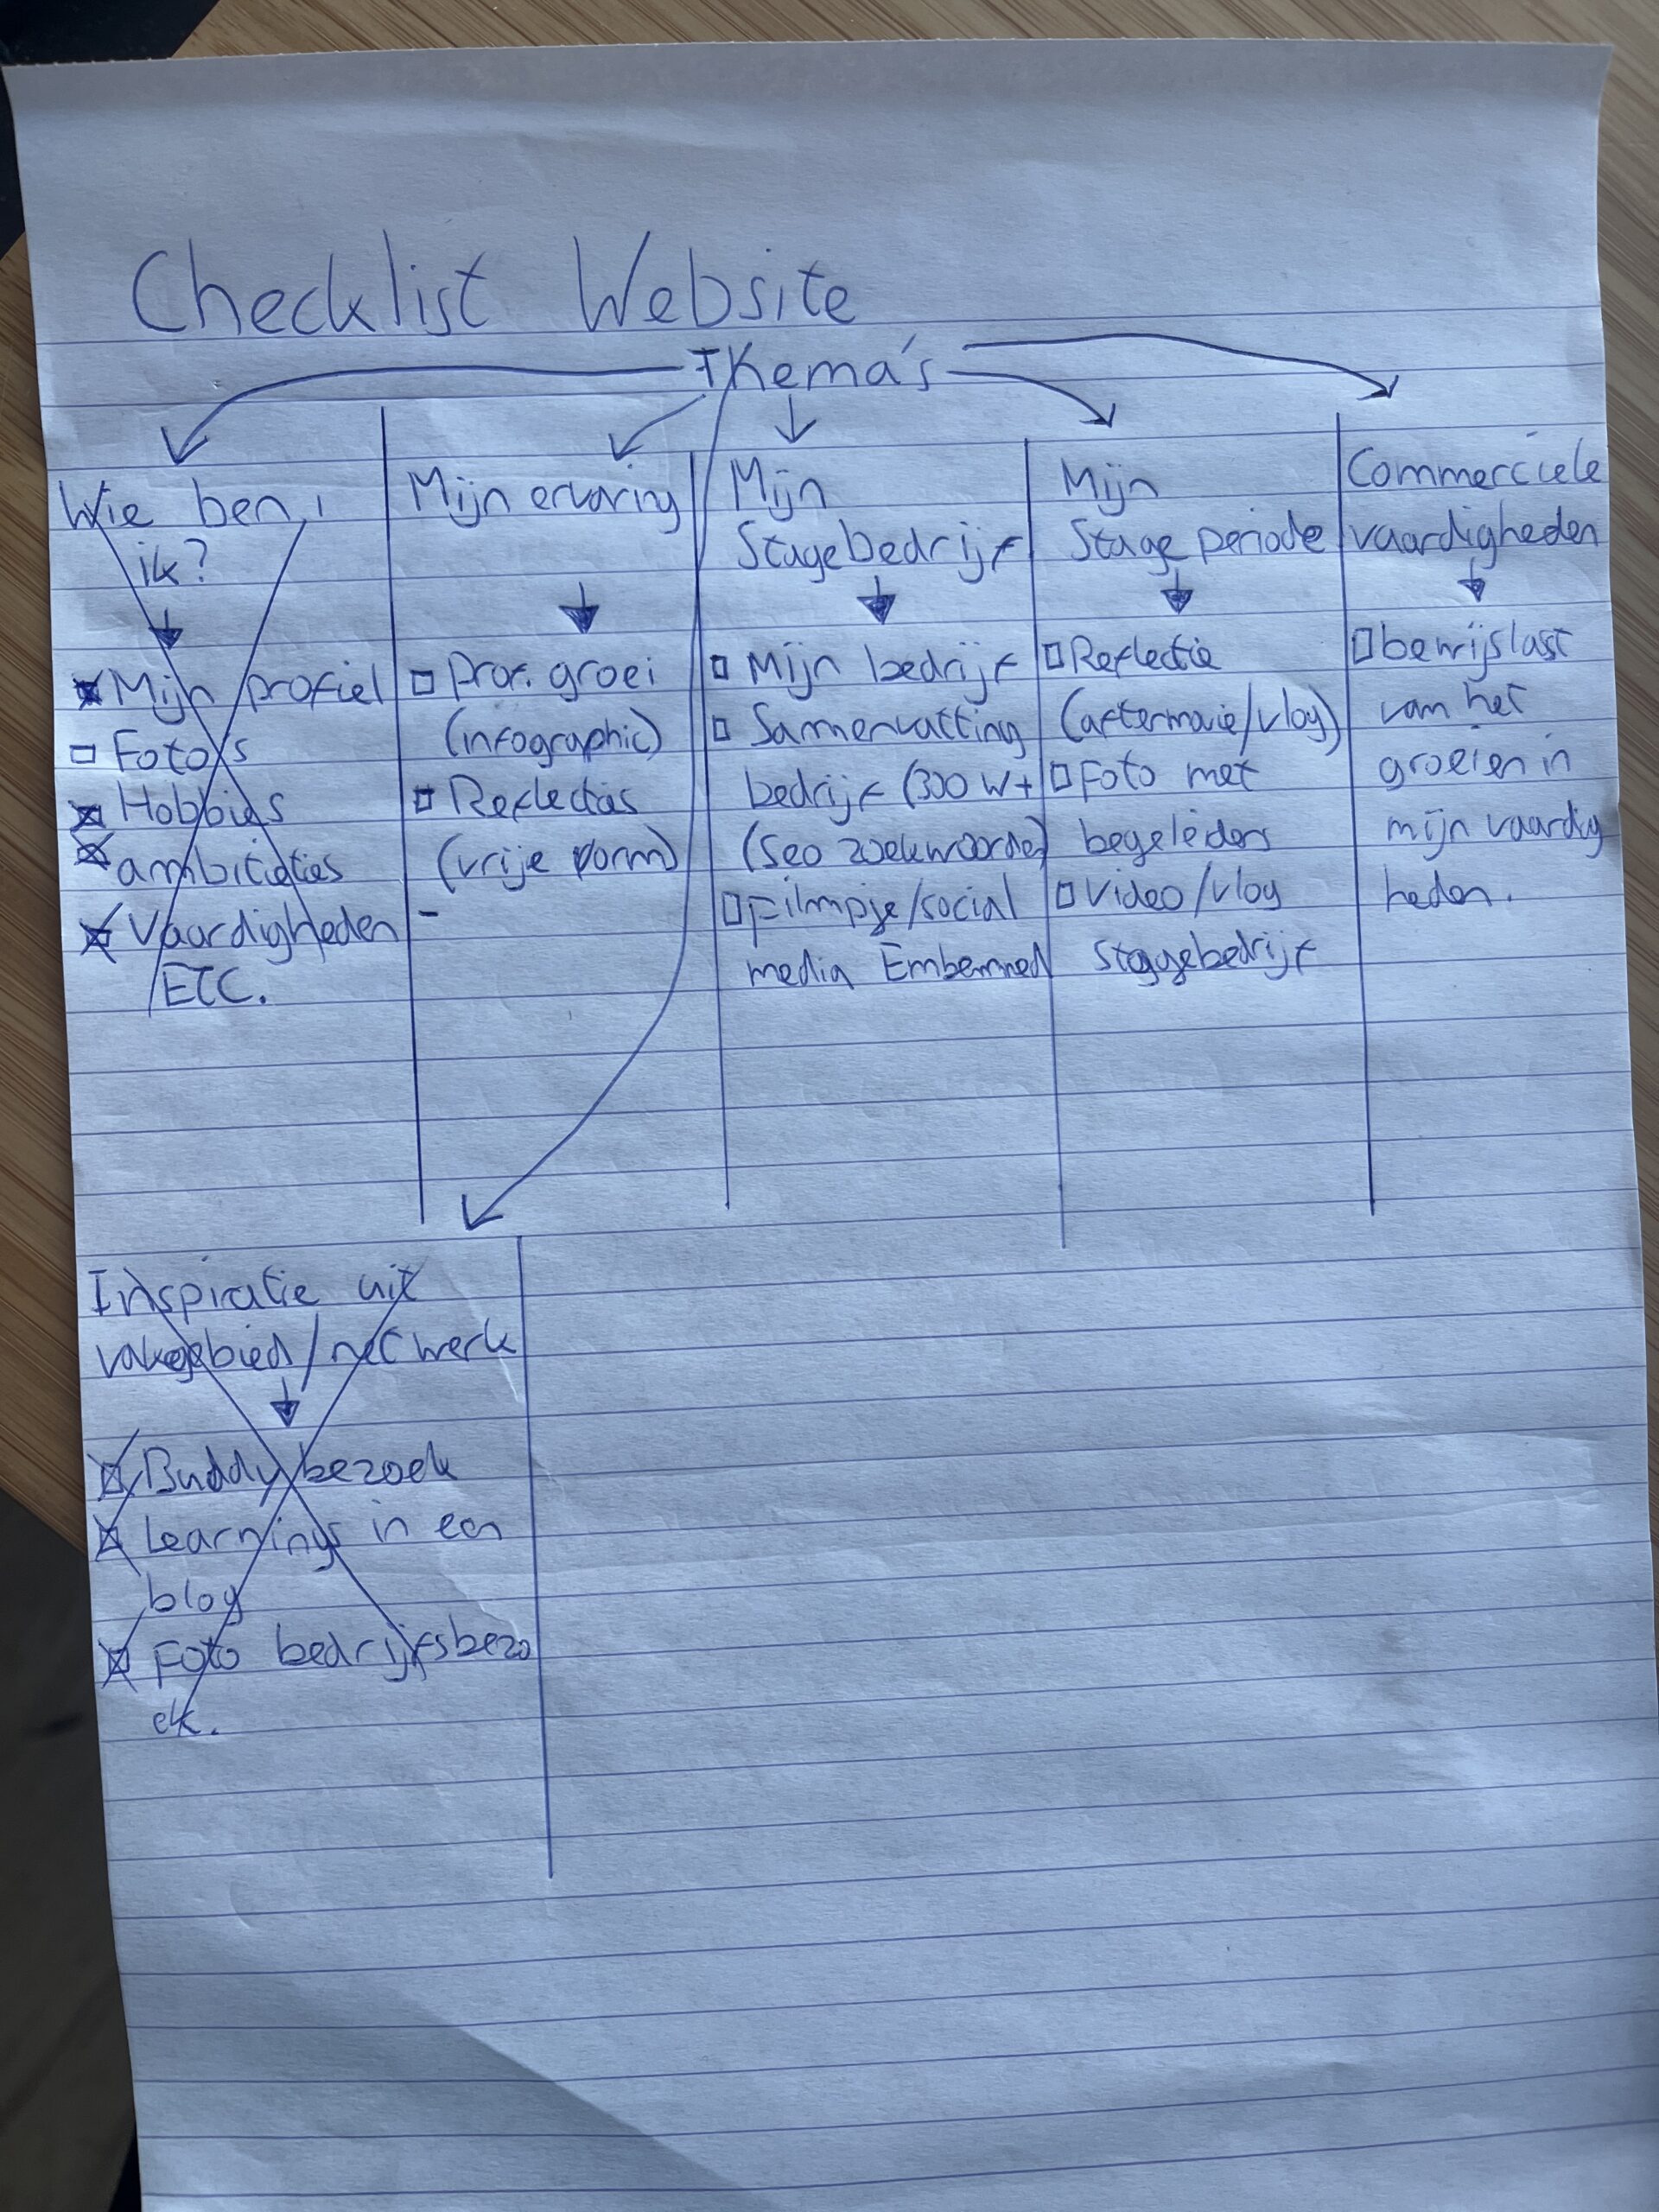 Checklist Website
Thema's
Wie ben
ik?
Mijn profiel
Foto's
Hobbies
ambitieties
Vaardigheden
ETC.
Mijn ervaring
Prof. groei
(infographic)
Reflecties
(vrije vorm)
-
Mijn
Stagebedrijf
Mijn bedrijf
Samenvatting
bedrijf (300 w+
(Seo zoekwoorden)
Filmpje/social
media Embemned
Mijn
Stage periode
Reflectie
(aftermovie/vlog)
Foto met
begeleiders
Video/vlog
Stagebedrijf
Commerciele
vaardigheden
bewijslast
van het
groeien in
mijn vaardig
heden.
Inspiratie uit
vakgebied/netwerk
Buddy bezoek
Learnings in een
blog
Foto bedrijfsbezo
ek.